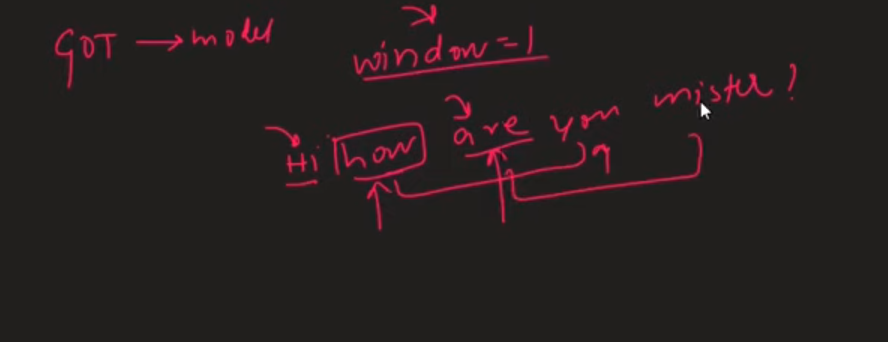 GOT → model
window=1
Hi how are you mister?